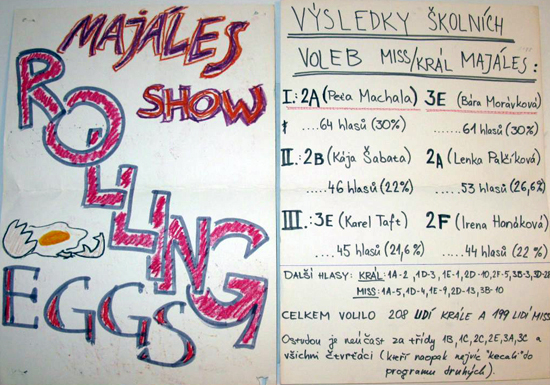 MAJÁLES
SHOW
ROLLING
EGGS
VÝSLEDKY ŠKOLNÍCH
VOLEB MISS/KRÁL MAJÁLES:
I.: 2A (Peťa Machala) 3E (Bára Morávková)
....64 hlasů (30%) ....61 hlasů (30%)
II.: 2B (Kája Šabata) 2A (Lenka Palžíková)
....46 hlasů (22%) ....53 hlasů (26,6%)
III.: 3E (Karel Taft) 2F (Irena Hanáková)
45 hlasů (21,6%) ....44 hlasů (22%)
DALŠÍ HLASY: KRÁL: 1A-2, 1D-3, 1E-1, 2D-10, 2F-5, 3B-3, 3D-28
MISS: 1A-5, 1D-4, 1E-9, 2D-13, 3B-10
CELKEM VOLILO 208 LIDÍ KRÁLE A 199 LIDÍ MISS
Ostudou je neúčast za třídy 1B, 1C, 2C, 2E, 3A, 3C a
všichni čtvrťáci (kteří naopak nejvíc "kecali" do
programu druhých).